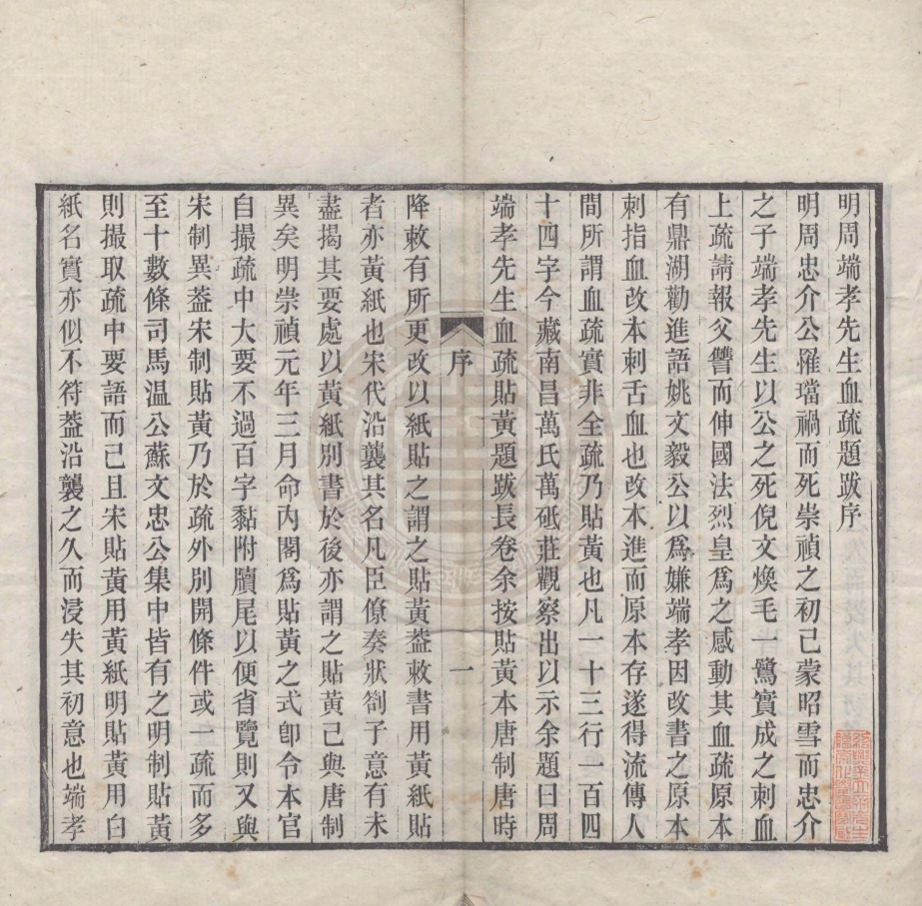 明周端孝先生血疏題跋序
明周忠介公罹璫禍而死崇禎之初已蒙昭雪而忠介
之子端孝先生以公之死倪文煥毛一鷺實成之刺血
上疏請報父讐而伸國法烈皇為之感動其血疏原本
有鼎湖勸進語姚文毅公以爲嫌端孝因改書之原本
刺指血改本刺舌血也改本進而原本存遂得流傳人
間所謂血疏實非全疏乃貼黃也凡一十三行一百四
十四字今藏南昌萬氏萬砥莊觀察出以示余題曰周
端孝先生血疏貼黃題跋長卷余按貼黃本唐制唐時
序
一
降敕有所更改以紙貼之謂之貼黃葢敕書用黃紙貼
者亦黃紙也宋代沿襲其名凡臣僚奏狀劄子意有未
盡揭其要處以黃紙別書於後亦謂之貼黃已與唐制
異矣明崇禎元年三月命內閣爲貼黃之式卽令本官
自撮疏中大要不過百字黏附牘尾以便省覽則又與
宋制異葢宋制貼黃乃於疏外別開條件或一疏而多
至十數條司馬温公蘇文忠公集中皆有之明制貼黃
則撮取疏中要語而已且宋貼黃用黃紙明貼黃用白
紙名實亦似不符葢沿襲之久而浸失其初意也端孝